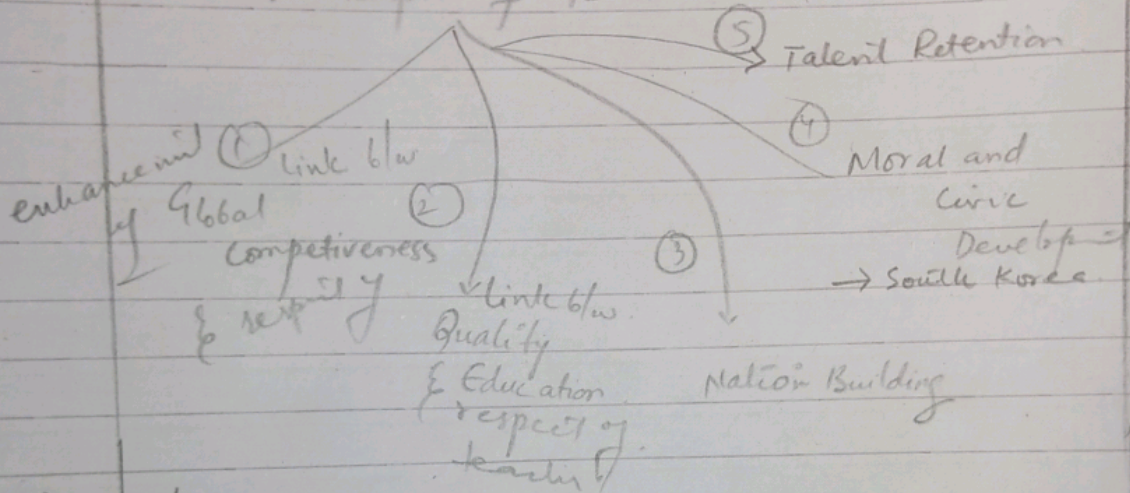 ⑤ Talent Retention
④
Moral and
Civic
Develop =
→ South Korea
enhancement ① Link b/w
of Global
Competiveness
& resp
②
Link b/w
Quality
& Education
respect of
③
Nation Building